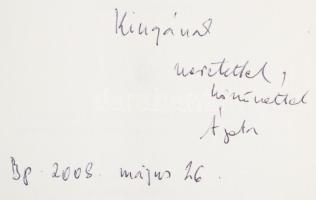 Kingának
szeretettel,
köszönettel
Ágota
Bp. 2008. május 26.